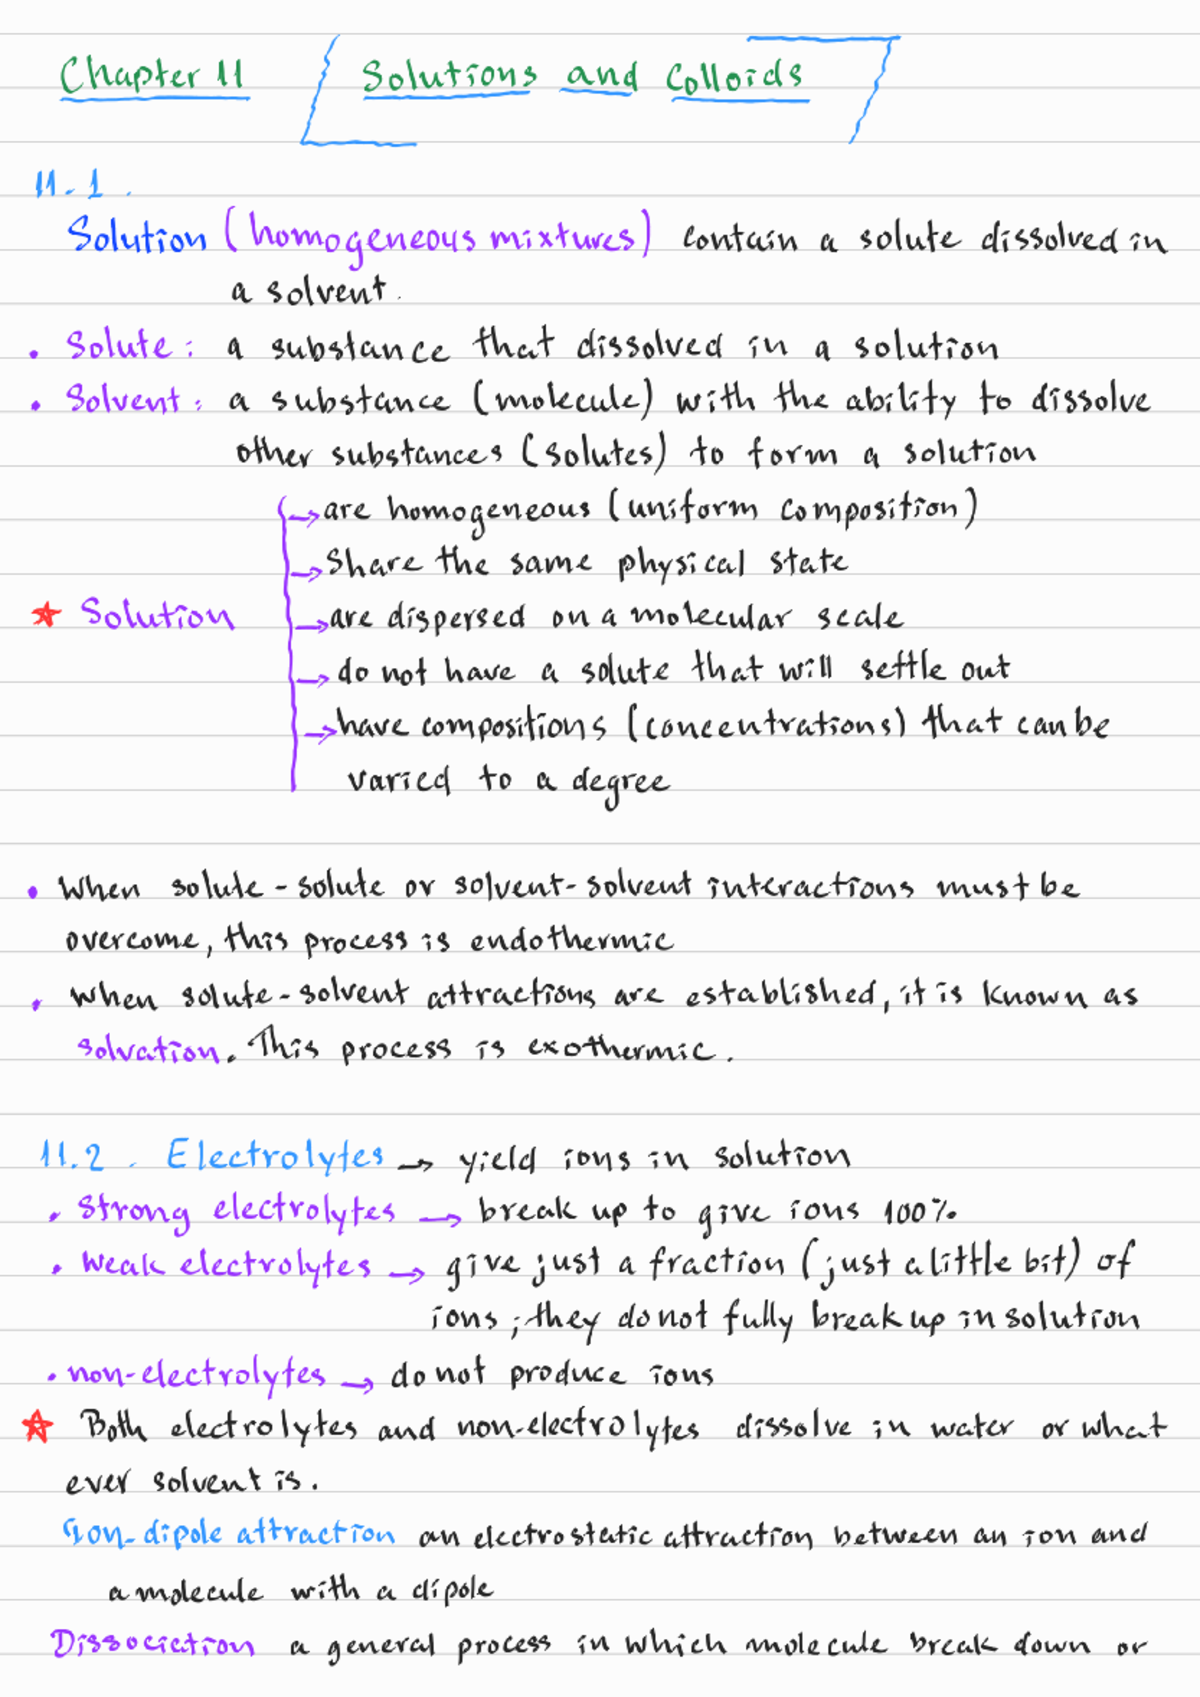 Chapter 11 Solutions and Colloids
11-1.
Solution (homogeneous mixtures) contain a solute dissolved in
a solvent.
• Solute: a substance that dissolved in a solution
• Solvent: a substance (molecule) with the ability to dissolve
other substances (solutes) to form a solution
→ are homogeneous (uniform composition)
→ Share the same physical state
★ Solution → are dispersed on a molecular scale
→ do not have a solute that will settle out
→ have compositions (concentrations) that can be
varied to a degree
• When solute-solute or solvent-solvent interactions must be
overcome, this process is endothermic
• When solute-solvent attractions are established, it is known as
solvation. This process is exothermic.
11.2. Electrolytes → yield ions in solution
• Strong electrolytes → break up to give ions 100%
• Weak electrolytes → give just a fraction (just a little bit) of
ions; they do not fully break up in solution
• non-electrolytes → do not produce ions
★ Both electrolytes and non-electrolytes dissolve in water or what
ever solvent is.
Ion-dipole attraction an electrostatic attraction between an ion and
a molecule with a dipole
Dissociction a general process in which molecule break down or